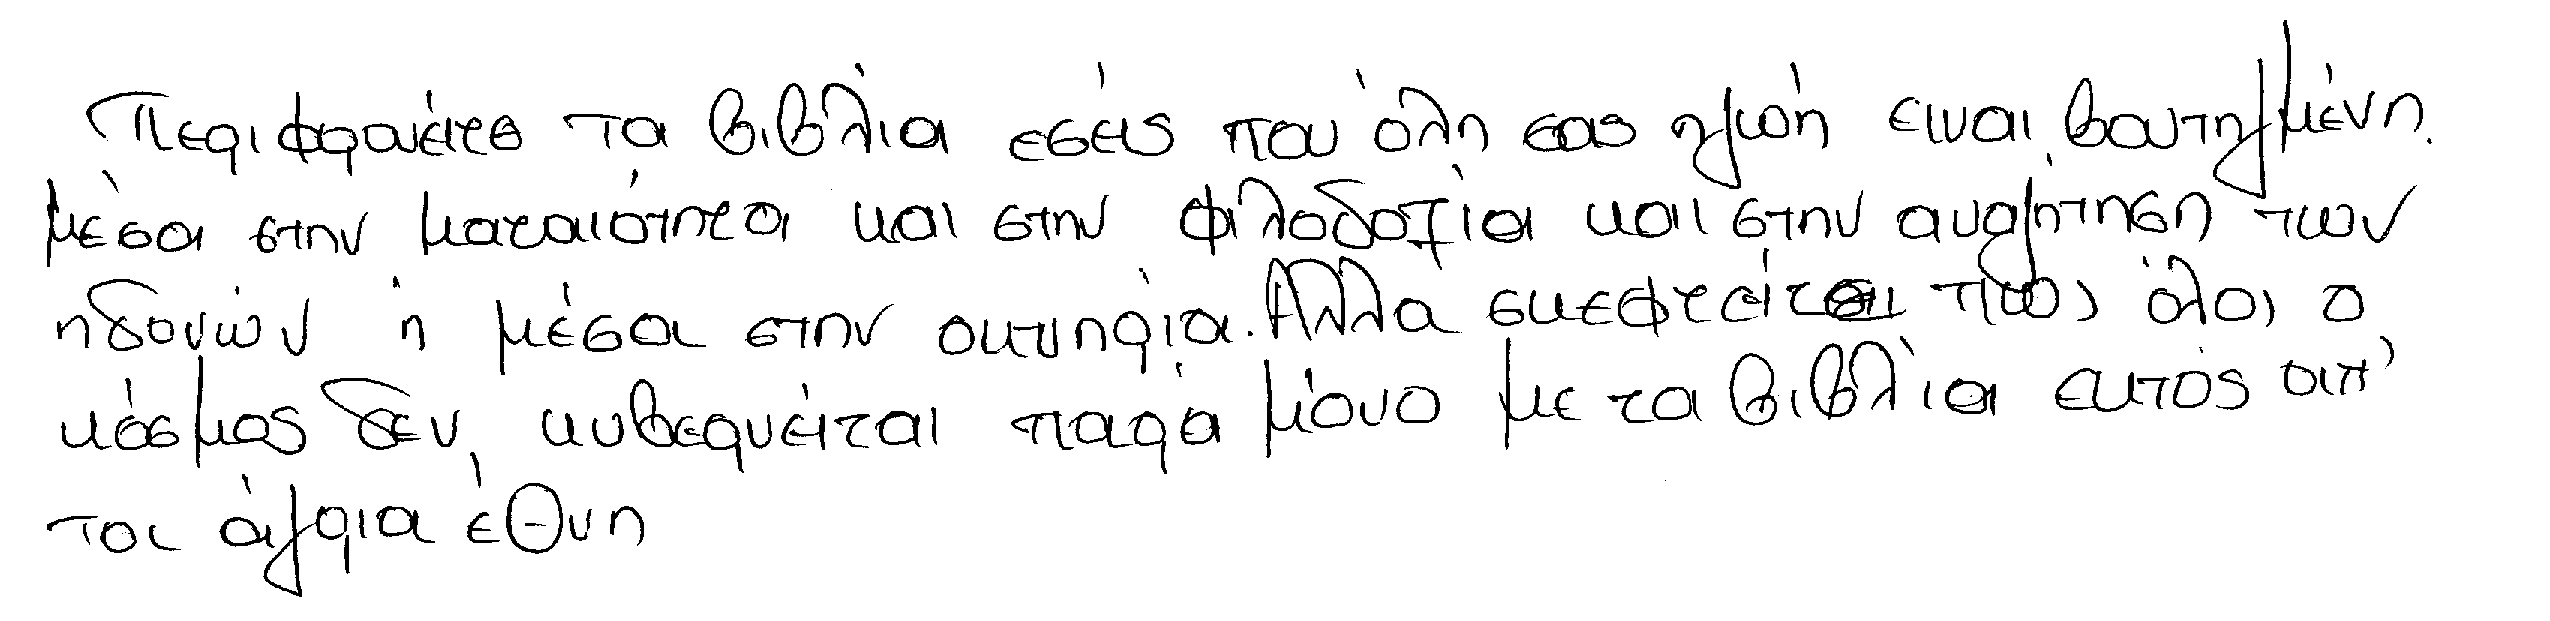 Περιφρονείτε τα βιβλία εσείς που όλη σας η ζωή ειναι βουτηγμένη
μέσα στην ματαιότητα και στην φιλοδοξία και στην αναζήτηση των
ηδονών ή μέσα στην οκνηρία. Αλλά σκεφτείτε πως όλος ο
κόσμος δεν κυβερνείται παρά μόνο με τα βιβλία εκτός απ'
τα άγρια έθνη